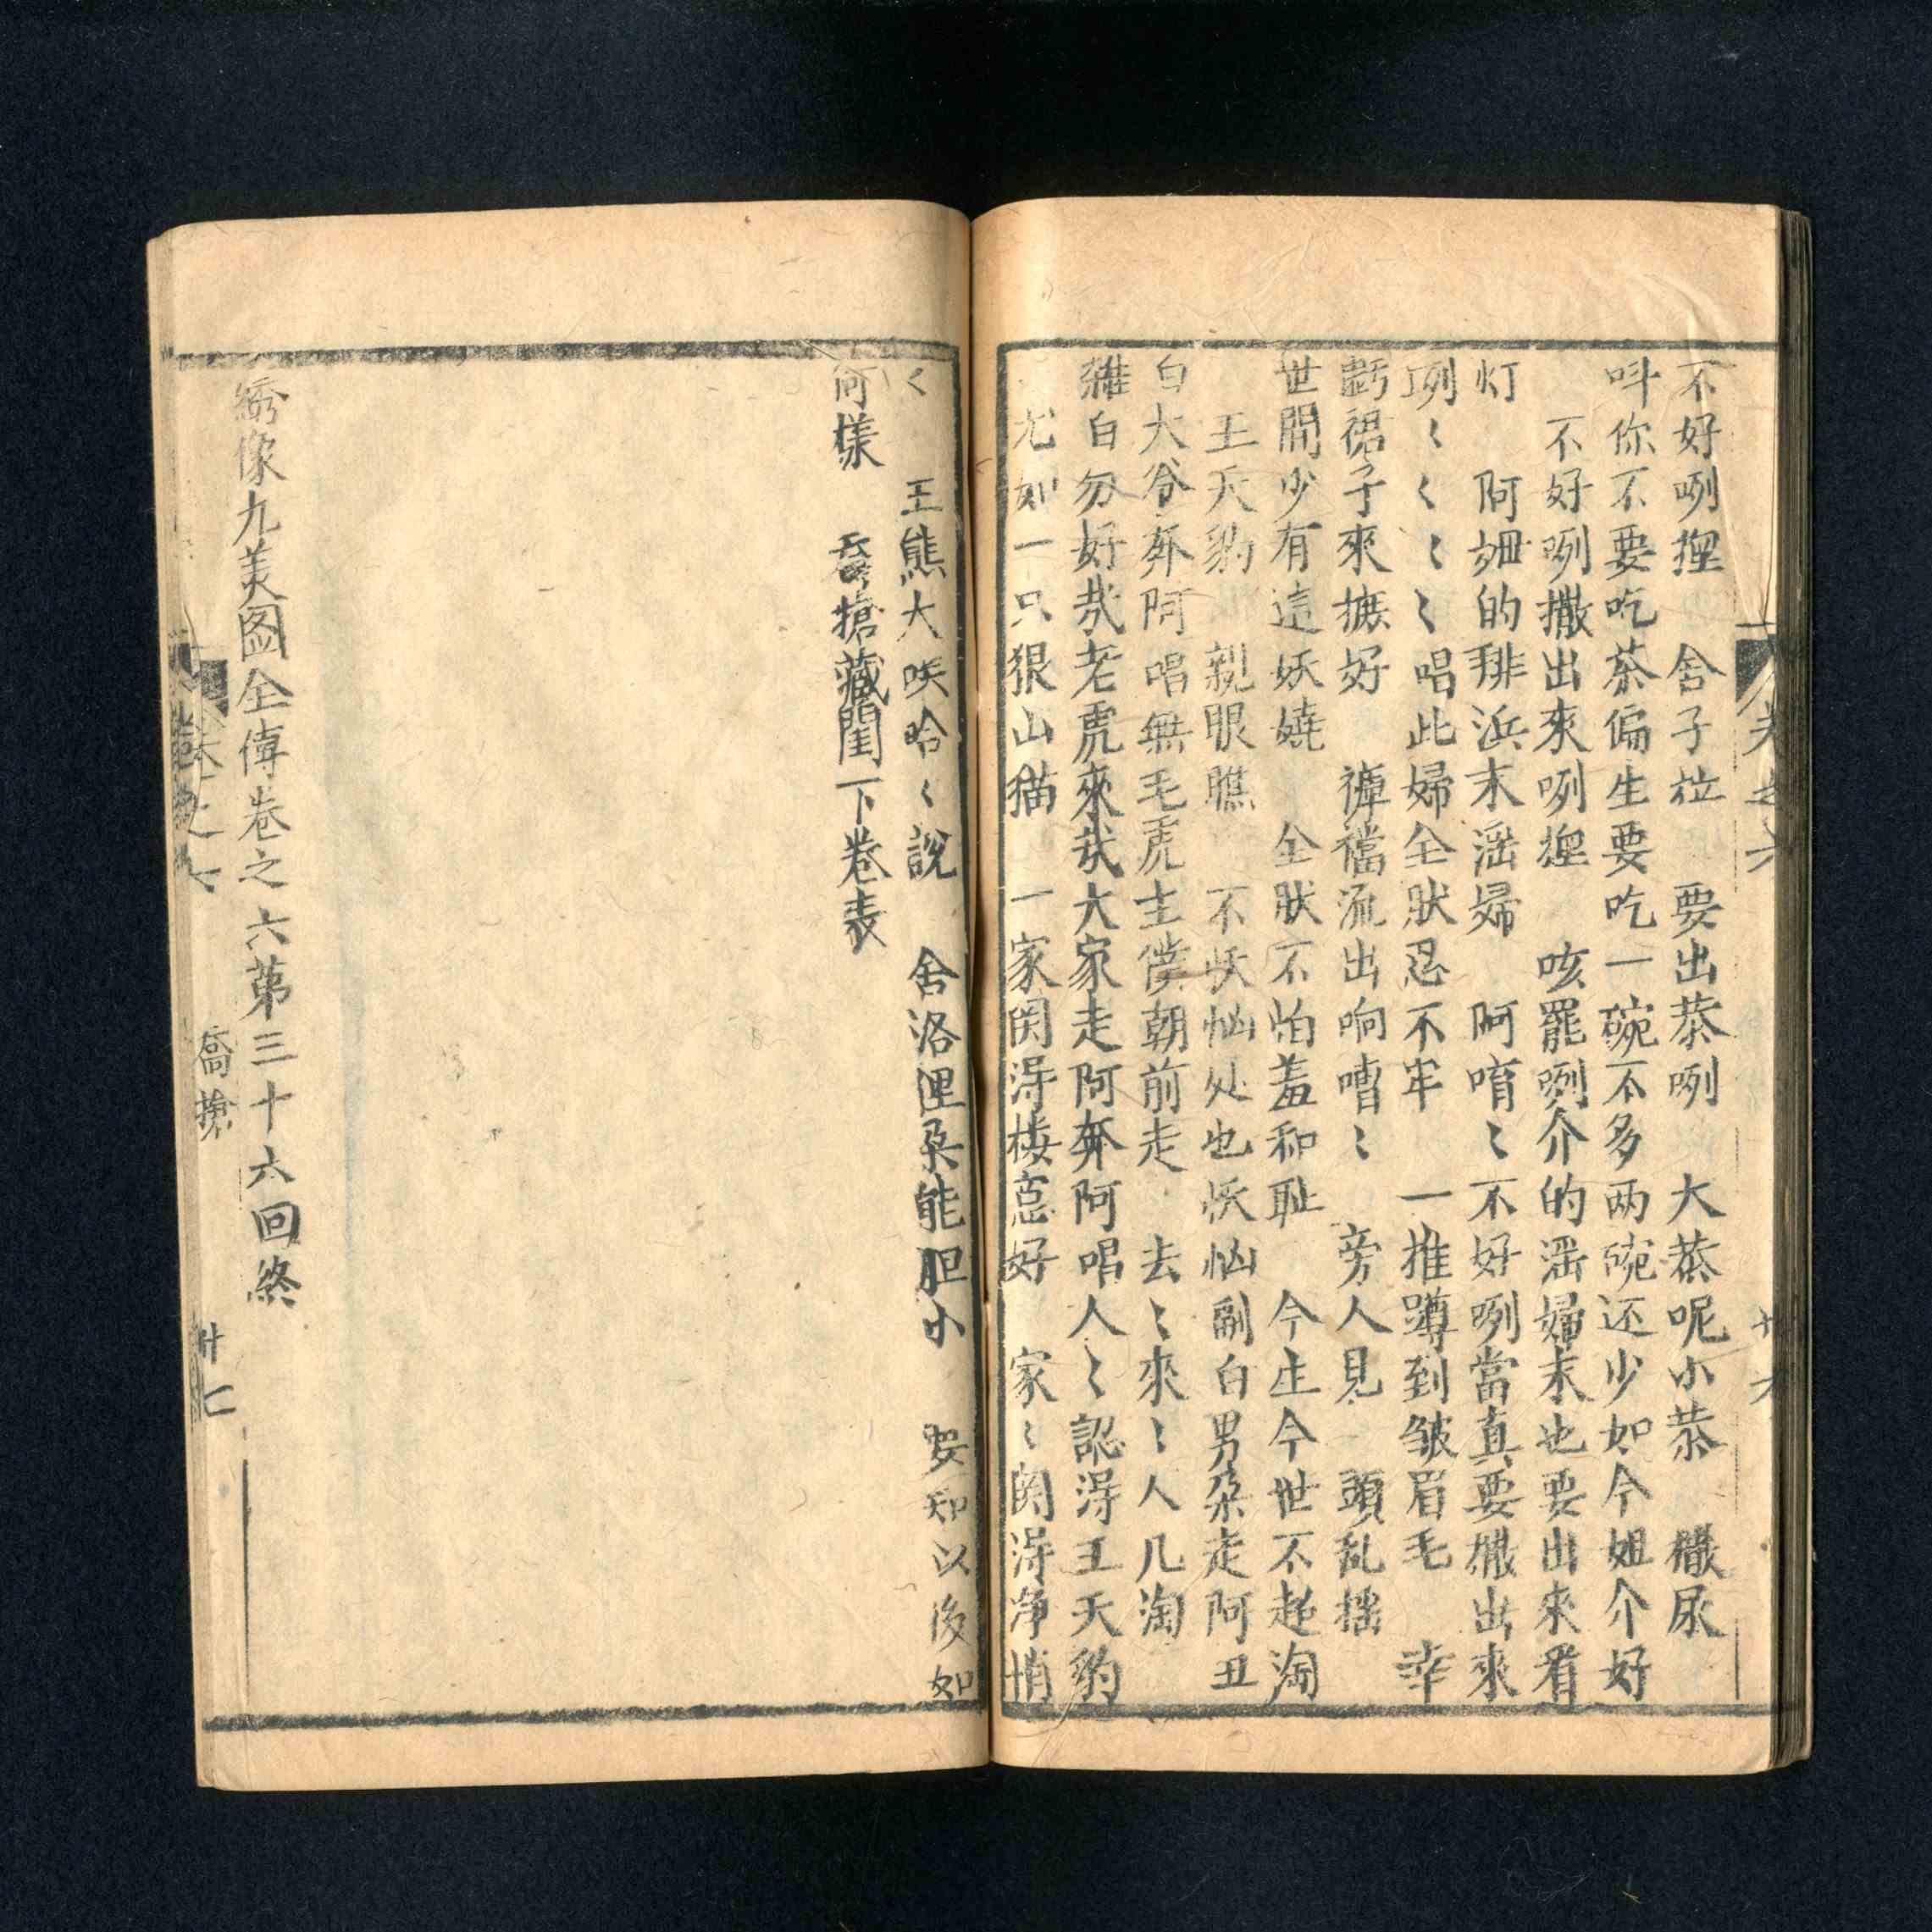 不好咧 舍子 要出恭咧 大恭呢小恭 撒尿
呌你不要吃茶偏生要吃一碗不多两碗还少如今姐介好
不好咧撒出來咧 咳罷咧介的淫婦末也要出來看
灯 阿姆的排浜末淫婦 阿唷〻不好咧當真要撒出來
咧〻〻〻〻唱此婦全狀忍不牢 一推蹲到皱眉毛 幸
虧裙子來摭好 褲襠流出响嘈〻 旁人見 頭乱摇
世間少有這妖嬈 全狀不怕羞和耻 今生今世不超淘
王天豹 親眼瞧 不恢恼处也恢恼副白男朶走阿丑
白大爷奔阿唱無毛虎主僕朝前走 去〻來〻人几淘
雜白勿好哉老虎來哉大家走阿奔阿唱人〻認淂王天豹
尤如一只狠山猫 一家関淂楼窓好 家〻関淂净悄
〻 王熊大咲哈〻說 舍洛俚朶能胆小 要知以後如
何樣 喬搶藏閨下卷表
綉像九美图全傳卷之六第三十六回終
喬搶
卄七